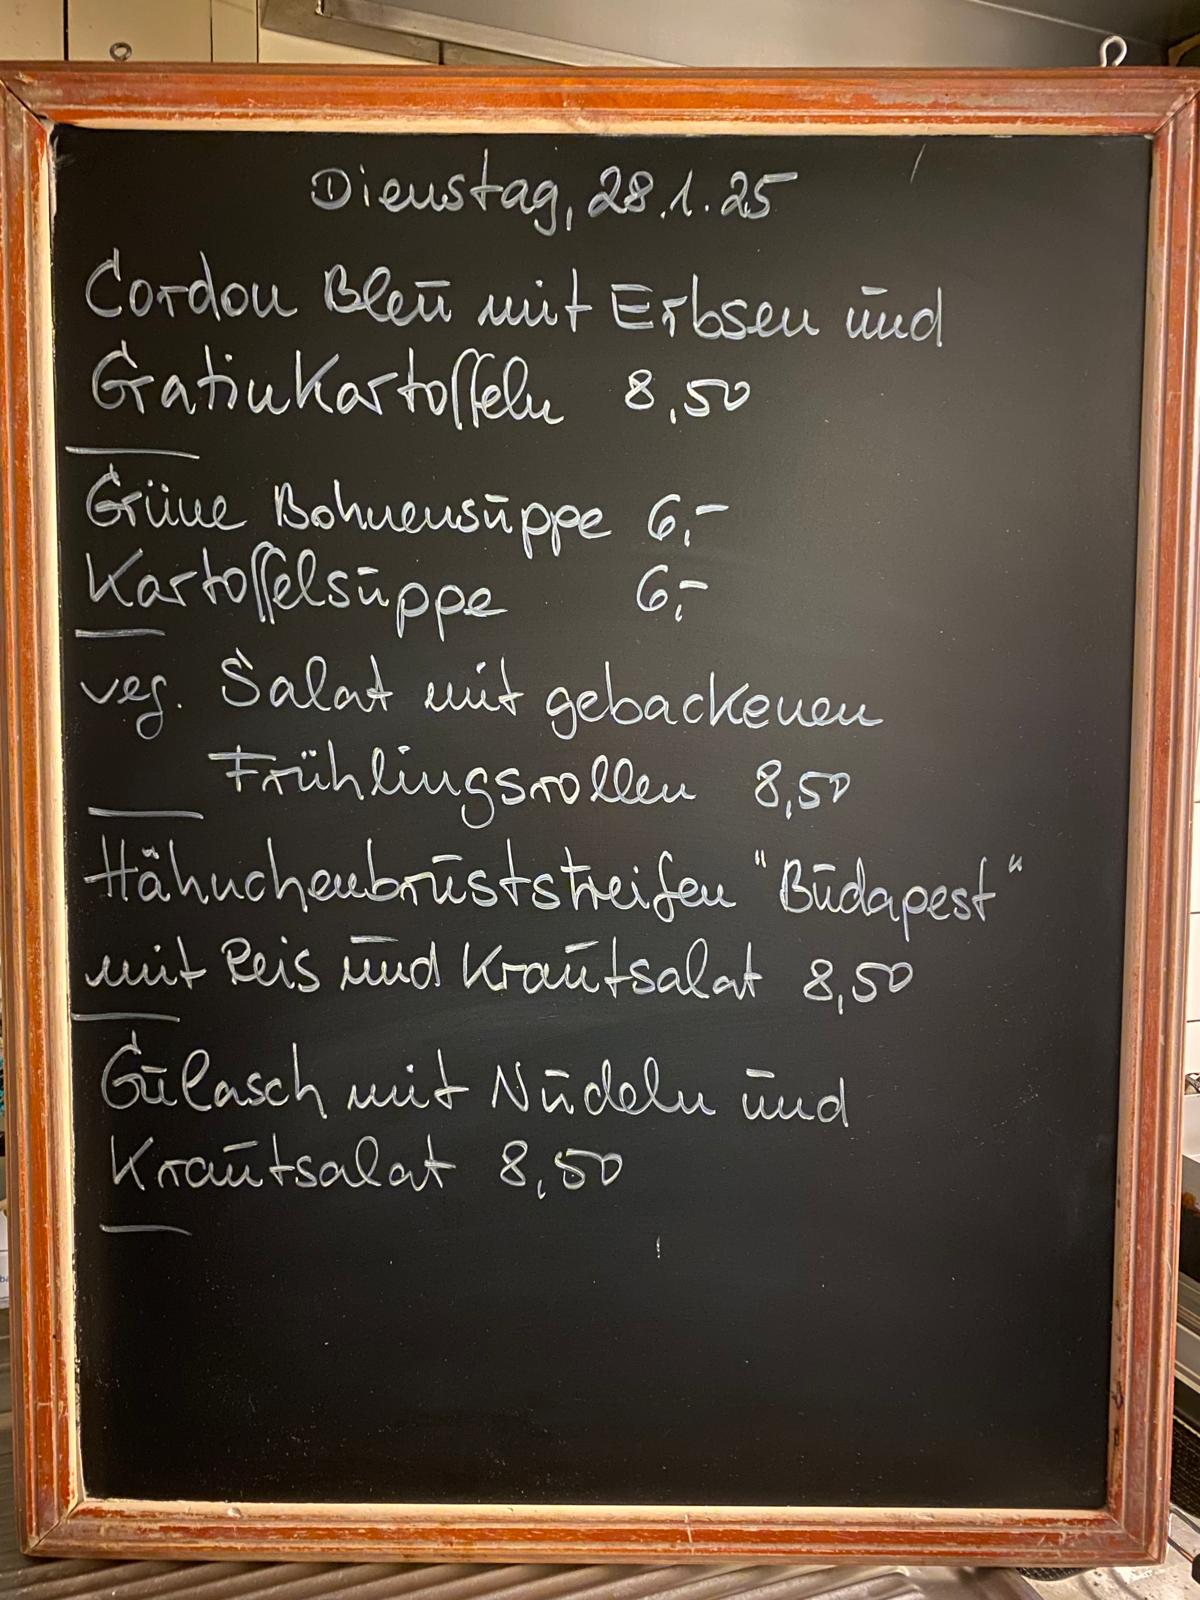 Dienstag, 28.1.25
Cordon Bleu mit Erbsen und
Gratinkartoffeln 8,50
Grüne Bohnensuppe 6,-
Kartoffelsuppe 6,-
veg. Salat mit gebackenen
Frühlingsrollen 8,50
Hähnchenbruststreifen "Budapest"
mit Reis und Krautsalat 8,50
Gulasch mit Nudeln und
Krautsalat 8,50